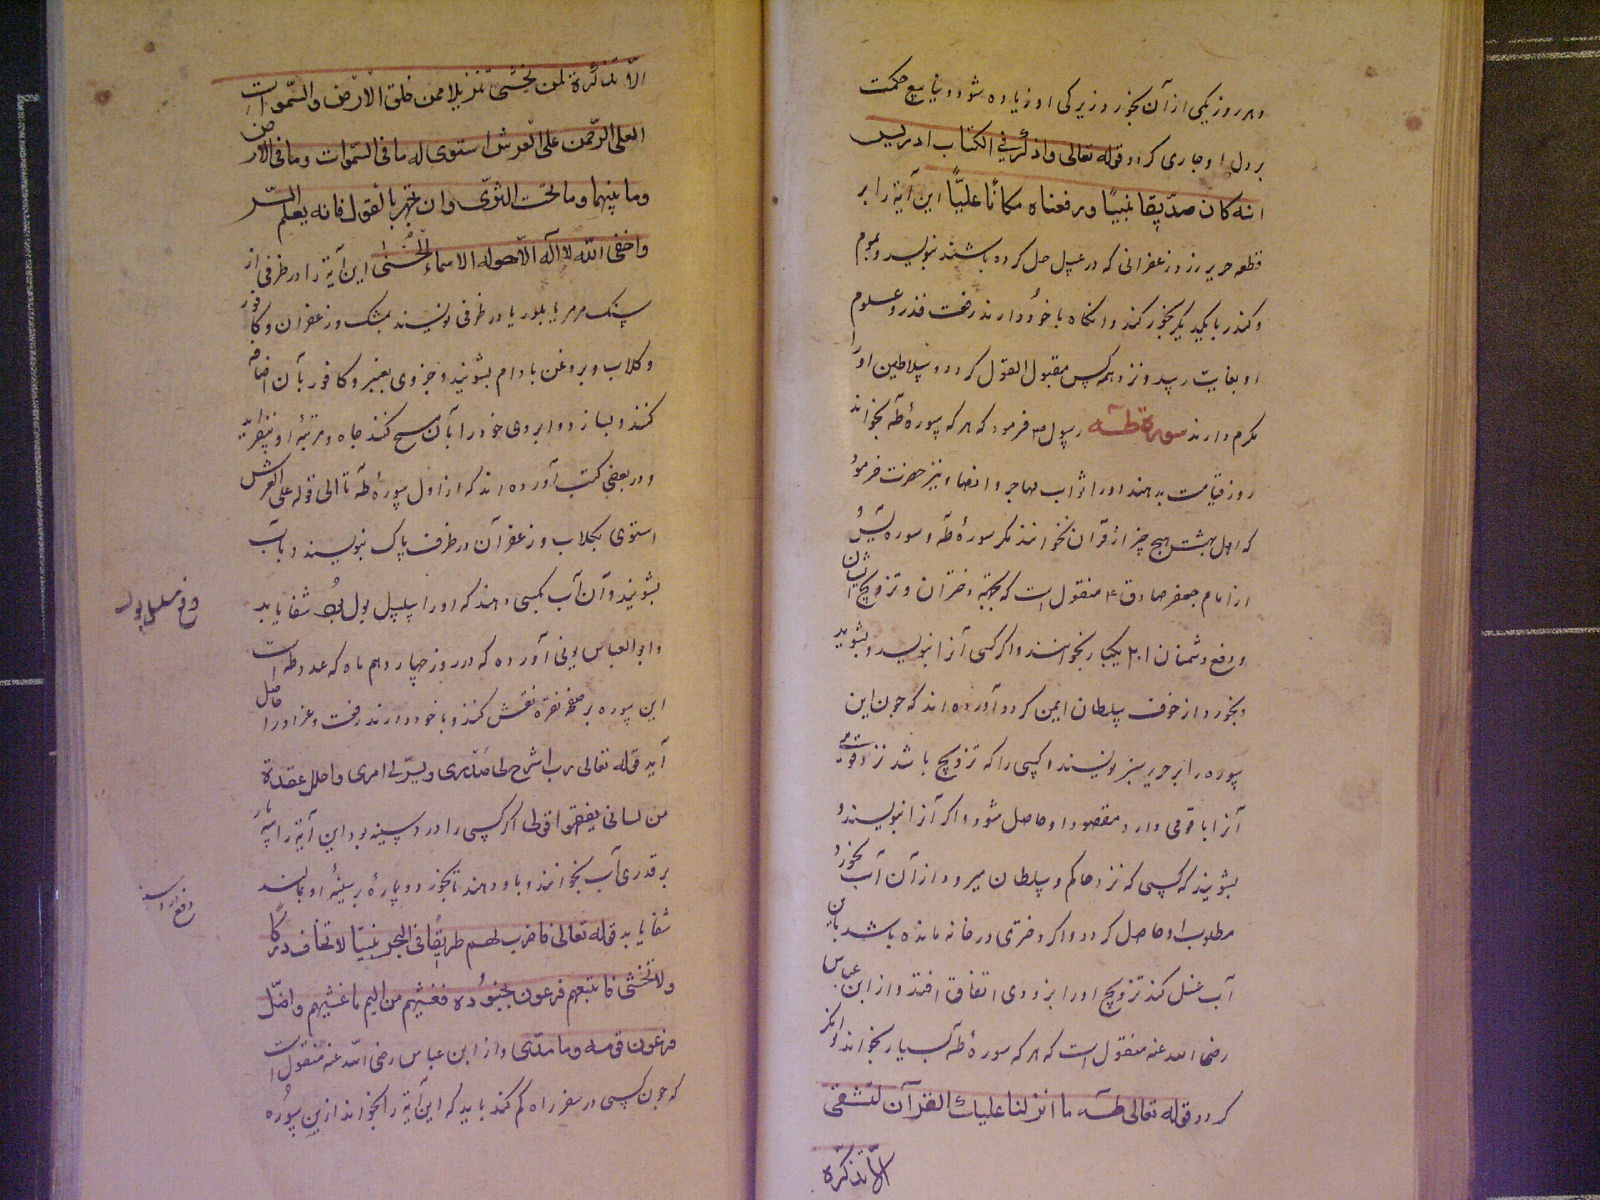 و هر روز یکی از آن بخورد زیرکی او زیاده شود و ینابیع حکمت
بر دل او جاری کردد قوله تعالی واذکر في الکتاب ادریس
انه کان صدّیقا نبیّا ورفعناه مکانًا علیًّا این آیة را بر
قطعه حریر زرد زعفرانی که در عسل حل کرده باشند بنویسد و بموم
و کندر با یکدیکر بخور کند وانکاه با خود دارند رفعت قدر و علوم
او بغایت رسد و نزد همه کس مقبول القول کردد و سلاطین او را
مکرم دارند سورة طـه رسول ص فرمود که هر که سورهٔ طه بخواند
روز قیامت بدهند او را ثواب مهاجر و انصار و نیز حضرت فرمود
که اهل بهشت هیچ چیز از قرآن نخوانند مکر سورهٔ طه و سوره یس
از امام جعفر صادق ع منقول است که بجهة دختران و تزویج ایشان
و دفع دشمنان ۲۰۱ یکبار بخوانند و اکر کسی آنرا بنویسد و بشوید
و بخورد از خوف سلطان ایمن کردد آورده اند که چون این
سوره را بر حریر سبز نویسند و کسی را که تزویج باشد نزد قومی
آنرا با قومی دارد مقصود او حاصل شود و اکر آنرا بنویسند و
بشویند که کسی که نزد حاکم و سلطان میرود از آن آب بخورد
مطلوب او حاصل کردد و اکر دختری در خانه مانده باشد باین
آب غسل کند تزویج او را بزودی اتفاق افتد و از ابن عباس
رضی الله عنه منقول است که هر که سورهٔ طه بسیار بخواند توانکر
کردد قوله تعالی طـه ما انزلنا علیك القرآن لتشقی
الّا تذکرة
الّا تذکرة لمن یخشی تنزیلا ممن خلق الارض والسّموات
العلی الرّحمن علی العرش استوی له ما في السّموات وما في الارض
وما بینهما وما تحت الثری وان تجهر بالقول فانه یعلم السّر
واخفی الله لا اله الّا هو له الاسماء الحُسنی این آیة را در ظرفی از
سنک مرمر یا بلور یا در ظرفی نویسند بمشک و زعفران و کافور
و کلاب و بروغن بادام بشویند و جزوی بعنبر و کافور بآن اضافه
کنند و بسازد و ابروی خود را بآن مسح کند جاه و مرتبهٔ او بیفزاید
و در بعضی کتب آورده اند که از اول سورهٔ طه تا الی قوله علی العرش
استوی بکلاب و زعفران در ظرف پاک بنویسند و بآب
بشویند و آن آب بکسی دهند که او را سلسل بول بود شفا یابد
و ابو العباس بونی آورده که در روز چهاردهم ماه که عدد طه است
این سوره بر صفحه نقره نقش کنند و با خود دارند رفعت و عز او را حاصل
آید قوله تعالی رب اشرح لی صدری ویسّر لی امری واحلل عقدة
من لسانی یفقهوا قولی اکر کسی را درد سینه بود این آیة را سه بار
بر قدری آب بخوانند و باو دهند تا بخورد و پارهٔ بر سینهٔ او بمالند
شفا یابد قوله تعالی فاضرب لهم طریقًا في البحر یبسًا لا تخاف درکًا
ولا تخشی فاتبعهم فرعون بجنوده فغشیهم من الیم ما غشیهم واضلّ
فرعون قومه وما هدی و از ابن عباس رضی الله عنه منقول است
که چون کسی در سفر راه کم کند باید که این آیة را بخواند از ین سوره
دفع سلسل بول